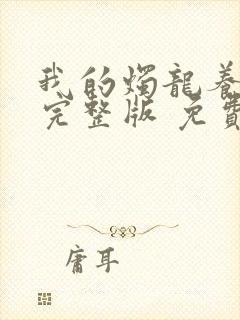 我的燭龍養
完整版 免費
庸耳